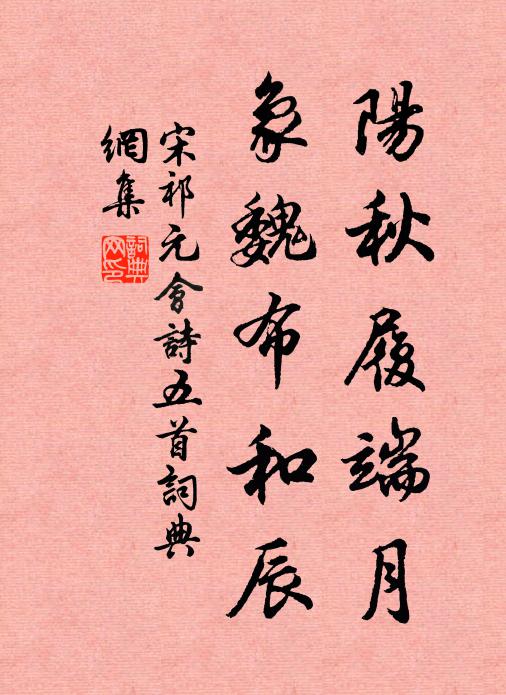 陽秋履端月
象魏布和辰
宋祁元會詩五首詞典
網集
詞典
网印